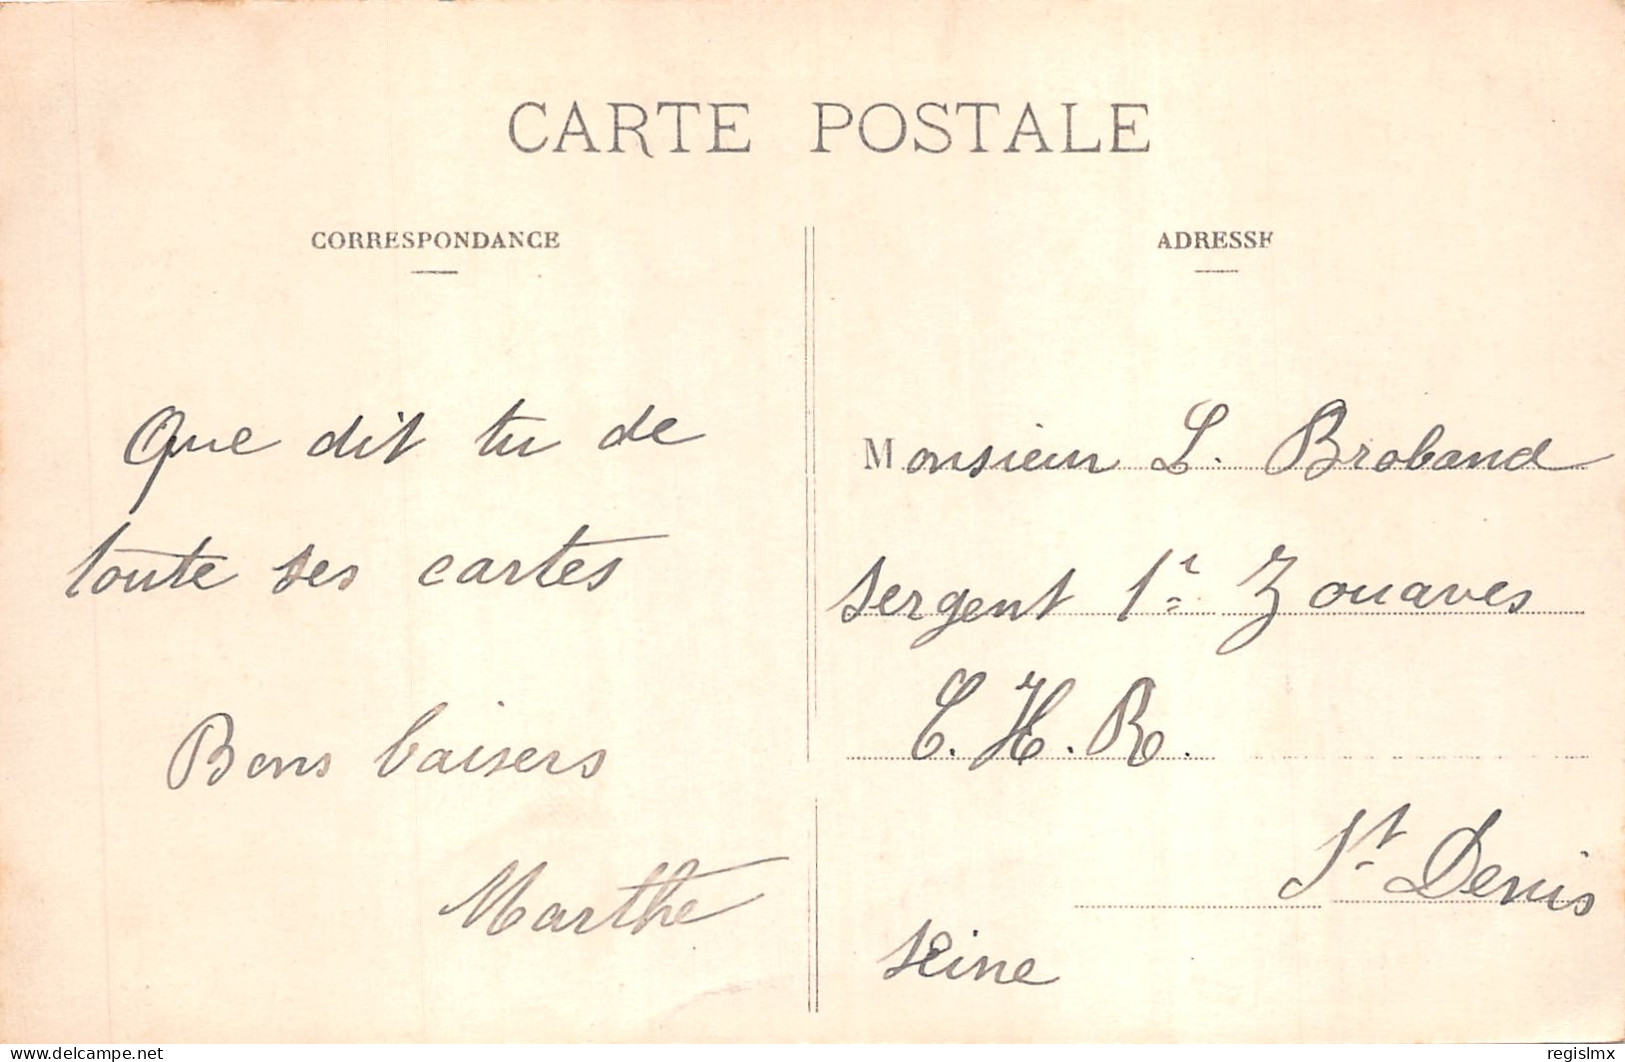 CARTE POSTALE
CORRESPONDANCE
Que dit tu de
toute ses cartes
Bons baisers
Marthe
ADRESSE
Monsieur L. Broband
sergent 1r Zouaves
C. H. R.
St Denis
Seine
regislmx